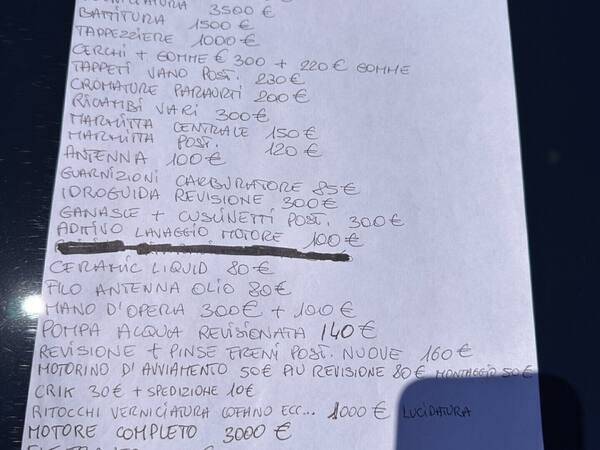 3500 €
BATTITURA 1500 €
TAPPEZZIERE 1000 €
CERCHI + GOMME € 300 + 220 € GOMME
TAPPETI VANO POST. 230 €
CROMATORE PARAURTI 200 €
RICAMBI VARI 300 €
MARMITTA CENTRALE 150 €
MARMITTA POST. 120 €
ANTENNA 100 €
GUARNIZIONI CARBURATORE 85 €
IDROGUIDA REVISIONE 300 €
GANASCE + CUSCINETTI POST. 300 €
ADITIVO LAVAGGIO MOTORE 100 €
CERAMIC LIQUID 80 €
FILO ANTENNA OLIO 80 €
MANO D'OPERA 300 € + 100 €
POMPA ACQUA REVISIONATA 140 €
REVISIONE + PINSE FRENI POST. NUOVE 160 €
MOTORINO D'AVVIAMENTO 50 € PIU REVISIONE 80 € MONTAGGIO 50 €
CRIK 30 € + SPEDIZIONE 10 €
RITOCCHI VERNICIATURA COFANO ECC... 1000 € LUCIDATURA
MOTORE COMPLETO 3000 €